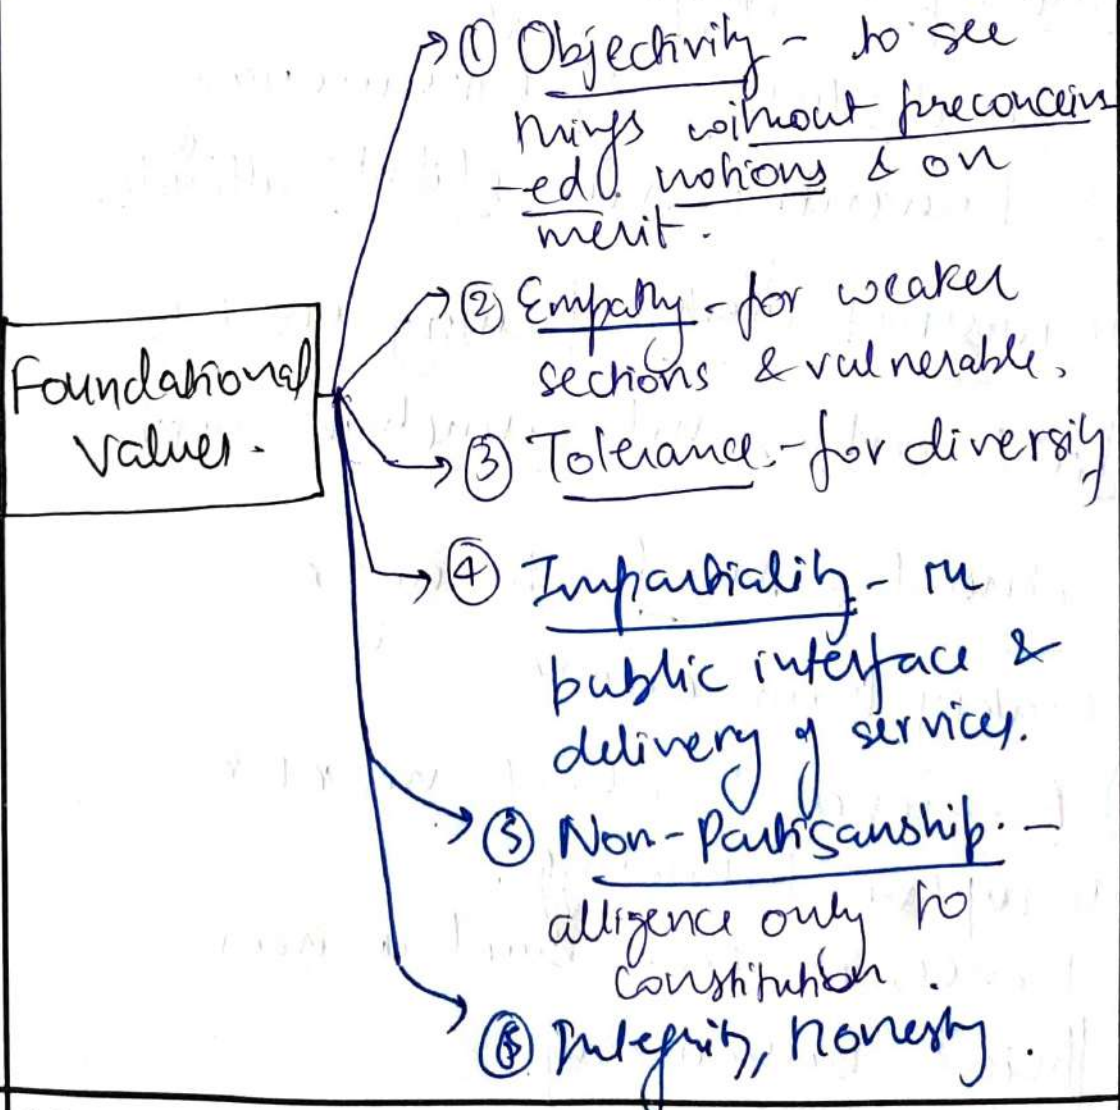 Foundational
Values.
① Objectivity - to see
things without preconceiv
-ed notions & on
merit.
② Empathy - for weaker
sections & vulnerable.
③ Tolerance - for diversity
④ Impartiality - in
public interface &
delivery of services.
⑤ Non-Partisanship. -
alligence only to
Constitution.
⑥ Integrity, honesty.